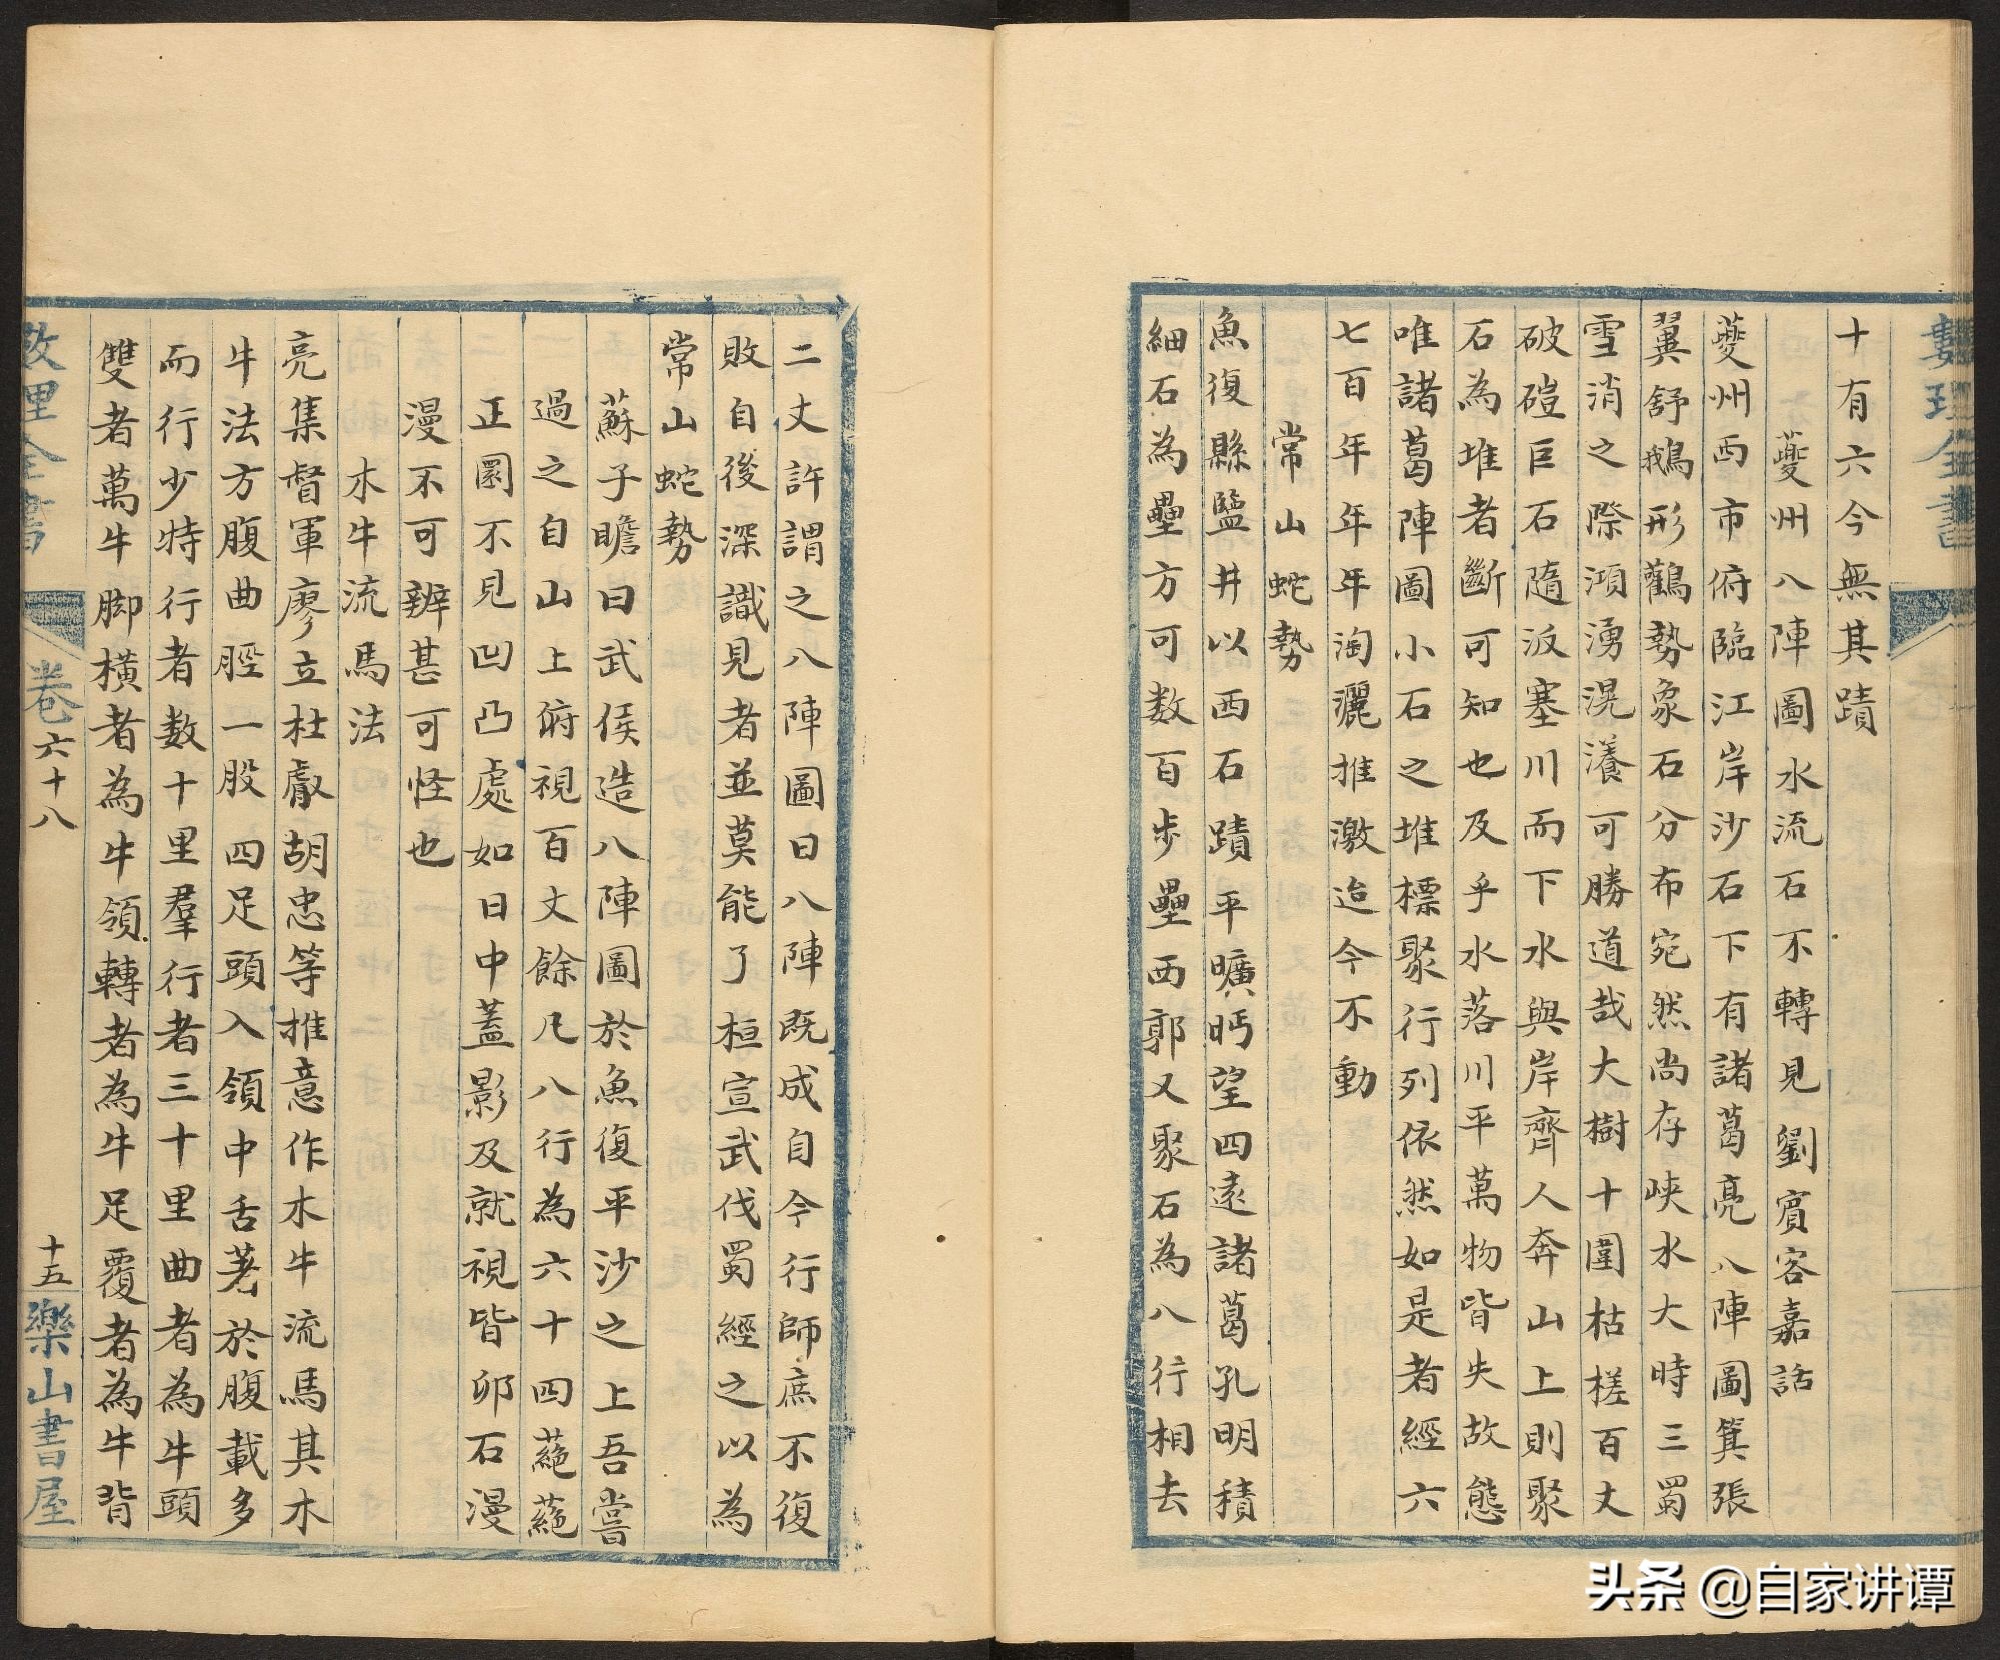 數理全書
十有六今無其蹟
夔州八陣圖水流石不轉見劉賓客嘉話
夔州西市俯臨江岸沙石下有諸葛亮八陣圖箕張
翼舒鵝形鸛勢象石分布宛然尚存峽水大時三蜀
雪消之際澒湧滉瀁可勝道哉大樹十圍枯槎百丈
破磑巨石隨派塞川而下水與岸齊人奔山上則聚
石為堆者斷可知也及乎水落川平萬物皆失故態
唯諸葛陣圖小石之堆標聚行列依然如是者經六
七百年年年淘灑推激迨今不動
常山蛇勢
魚復縣鹽井以西石蹟平曠眄望四遠諸葛孔明積
細石為壘方可数百步壘西郭又聚石為八行相去
二丈許謂之八陣圖曰八陣既成自今行師庶不復
敗自後深識見者並莫能了桓宣武伐蜀經之以為
常山蛇勢
蘇子瞻曰武侯造八陣圖於魚復平沙之上吾嘗
過之自山上俯視百丈餘凡八行為六十四蕝蕝
正圜不見凹凸處如日中蓋影及就視皆卵石漫
漫不可辨甚可怪也
木牛流馬法
亮集督軍廖立杜叡胡忠等推意作木牛流馬其木
牛法方腹曲脛一股四足頭入領中舌著於腹載多
而行少特行者数十里羣行者三十里曲者為牛頭
雙者萬牛脚橫者為牛領轉者為牛足覆者為牛背
数理全書
卷六十八
十五
樂山書屋
头条 @自家讲谭